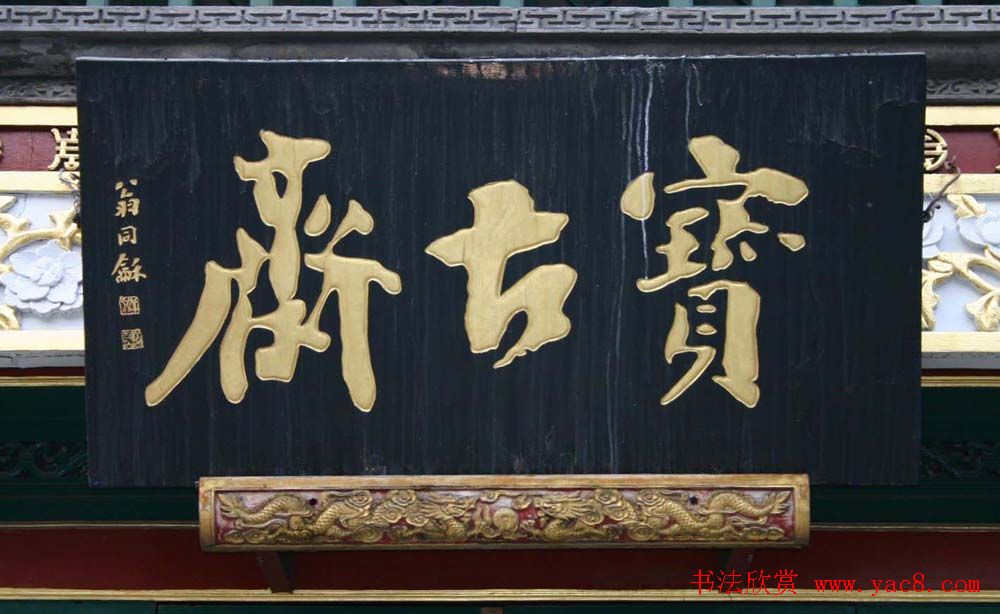 寳古齋
翁同龢
书法欣赏 www.yac8.com